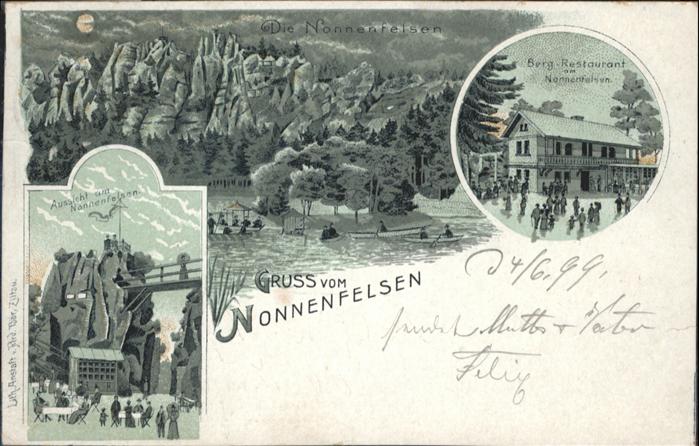 Die Nonnenfelsen
Berg-Restaurant
am
Nonnenfelsen.
Aussicht am
Nonnenfelsen.
GRUSS VOM
NONNENFELSEN
D 4/6. 99.
sendet Mutter + Vater
Felix
Lith. Anstalt v. Ferd. Bär, Zittau.